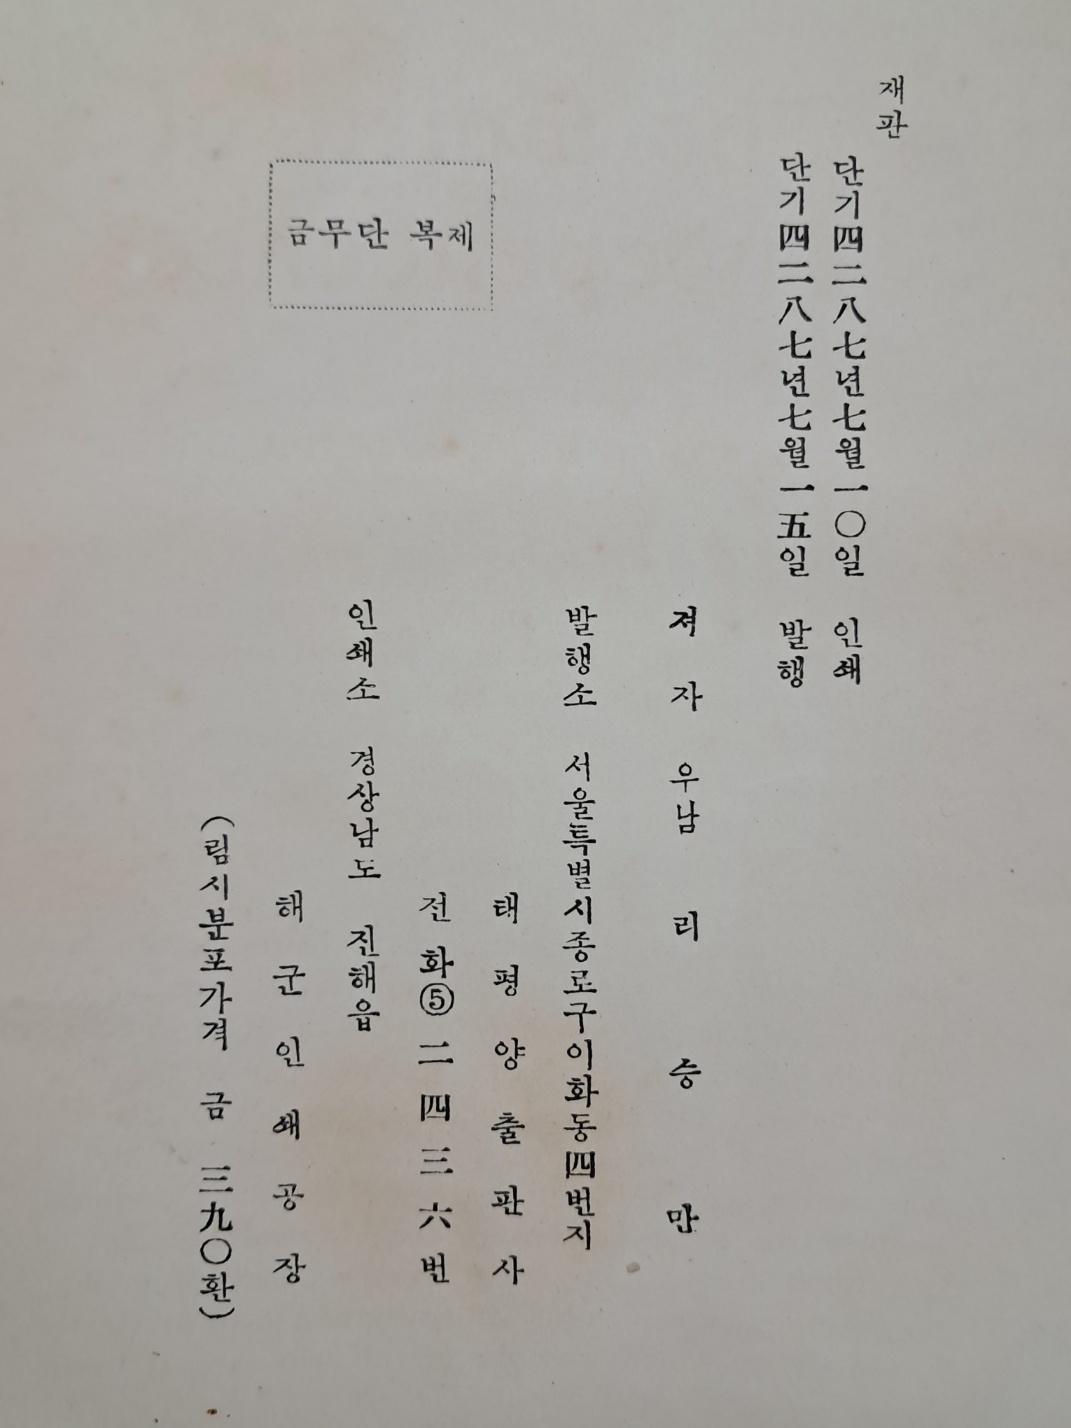 재판
단기四二八七년七월一〇일 인쇄
단기四二八七년七월一五일 발행
져 자 우남 리 승 만
발행소 서울특별시종로구이화동四번지
태평양출판사
전화⑤二四三六번
인쇄소 경상남도 진해읍
해군인쇄공장
(림시분포가격 금 三九〇환)
금무단 복제